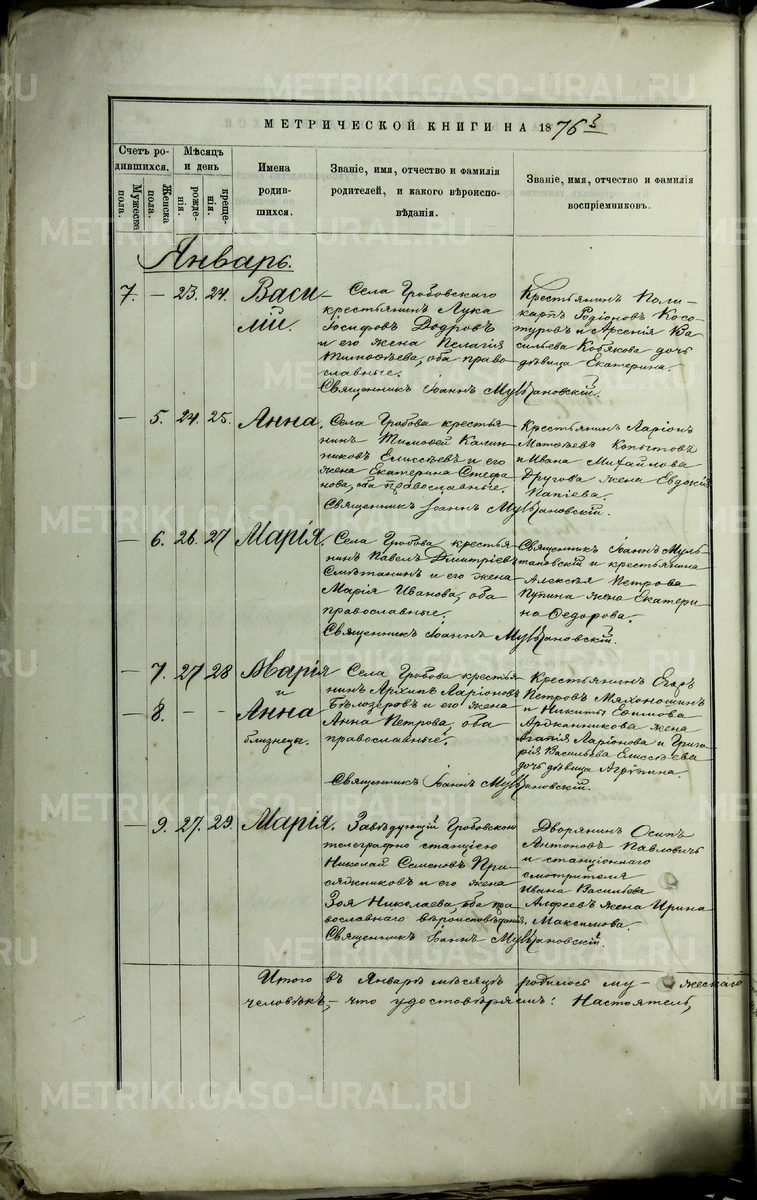 МЕТРИЧЕСКОЙ КНИГИ НА 1876 г.
Счетъ ро-
дившихся.
Мужеска
пола.
Женска
пола.
Мѣсяцъ
и день
рожде-
нія.
креще-
нія.
Имена
родив-
шихся.
Званіе, имя, отчество и фамилія
родителей, и какого вѣроиспо-
вѣданія.
Званіе, имя, отчество и фамилія
воспріемниковъ.
Январь.
7. — 23. 24. Васи-
лій.
Села Гробовскаго
крестьянинъ Лука
Іосифовъ Бодровъ
и его жена Пелагія
Тимоѳеева, оба право-
славные.
Священникъ Іоаннъ Мультановскій.
Крестьянинъ Поли-
карпъ Родіоновъ Косо-
туровъ и Арсенія Ва-
сильева Кобякова дочь
дѣвица Екатерина.
— 5. 24. 25. Анна.
Села Гробова крестья-
нинъ Тимоѳей Калин-
никовъ Елисѣевъ и его
жена Екатерина Стефа-
нова, оба православные.
Священникъ Іоаннъ Мультановскій.
Крестьянинъ Ларіонъ
Матвѣевъ Копытовъ
и Ивана Михайлова
Другова жена Евдокія
— 6. 26. 27 Марія.
Села Гробова крестья-
нинъ Павелъ Дмитріевъ
Смѣтанинъ и его жена
Марія Иванова, оба
православные.
Священникъ Іоаннъ Мультановскій.
Священникъ Іоаннъ Муль-
тановскій и крестьянина
Алексѣя Петрова
Пупина жена Екатери-
на Ѳедорова.
— 7. 27 28 Марія
и
— 8. — — Анна
близнецы.
Села Гробова крестья-
нинъ Архипъ Ларіоновъ
Бѣлозеровъ и его жена
Анна Петрова, оба
православные.
Священникъ Іоаннъ Мультановскій.
Крестьянинъ Егоръ
Петровъ Махоношинъ
и Никиты Ефимова
Аржанникова жена
Агапія Ларіонова и Григо-
рія Васильева Елисѣева
дочь дѣвица Агрипина.
— 9. 27. 29. Марія.
Завѣдующій Гробовскою
телеграфно станціею
Николай Семеновъ При-
сяжниковъ и его жена
Зоя Николаева, оба пра-
вославнаго вѣроисповѣданія.
Священникъ Іоаннъ Мультановскій.
Дворянинъ Осипъ
Антоновъ Павловичъ
и станціоннаго
смотрителя
Ивана Васильева
Алфеева жена Ирина
Максимова.
Итого въ Январѣ мѣсяцѣ родилось му- жескаго
человѣкъ, — что удостовѣряемъ: Настоятель,
METRIKI.GASO-URAL.RU